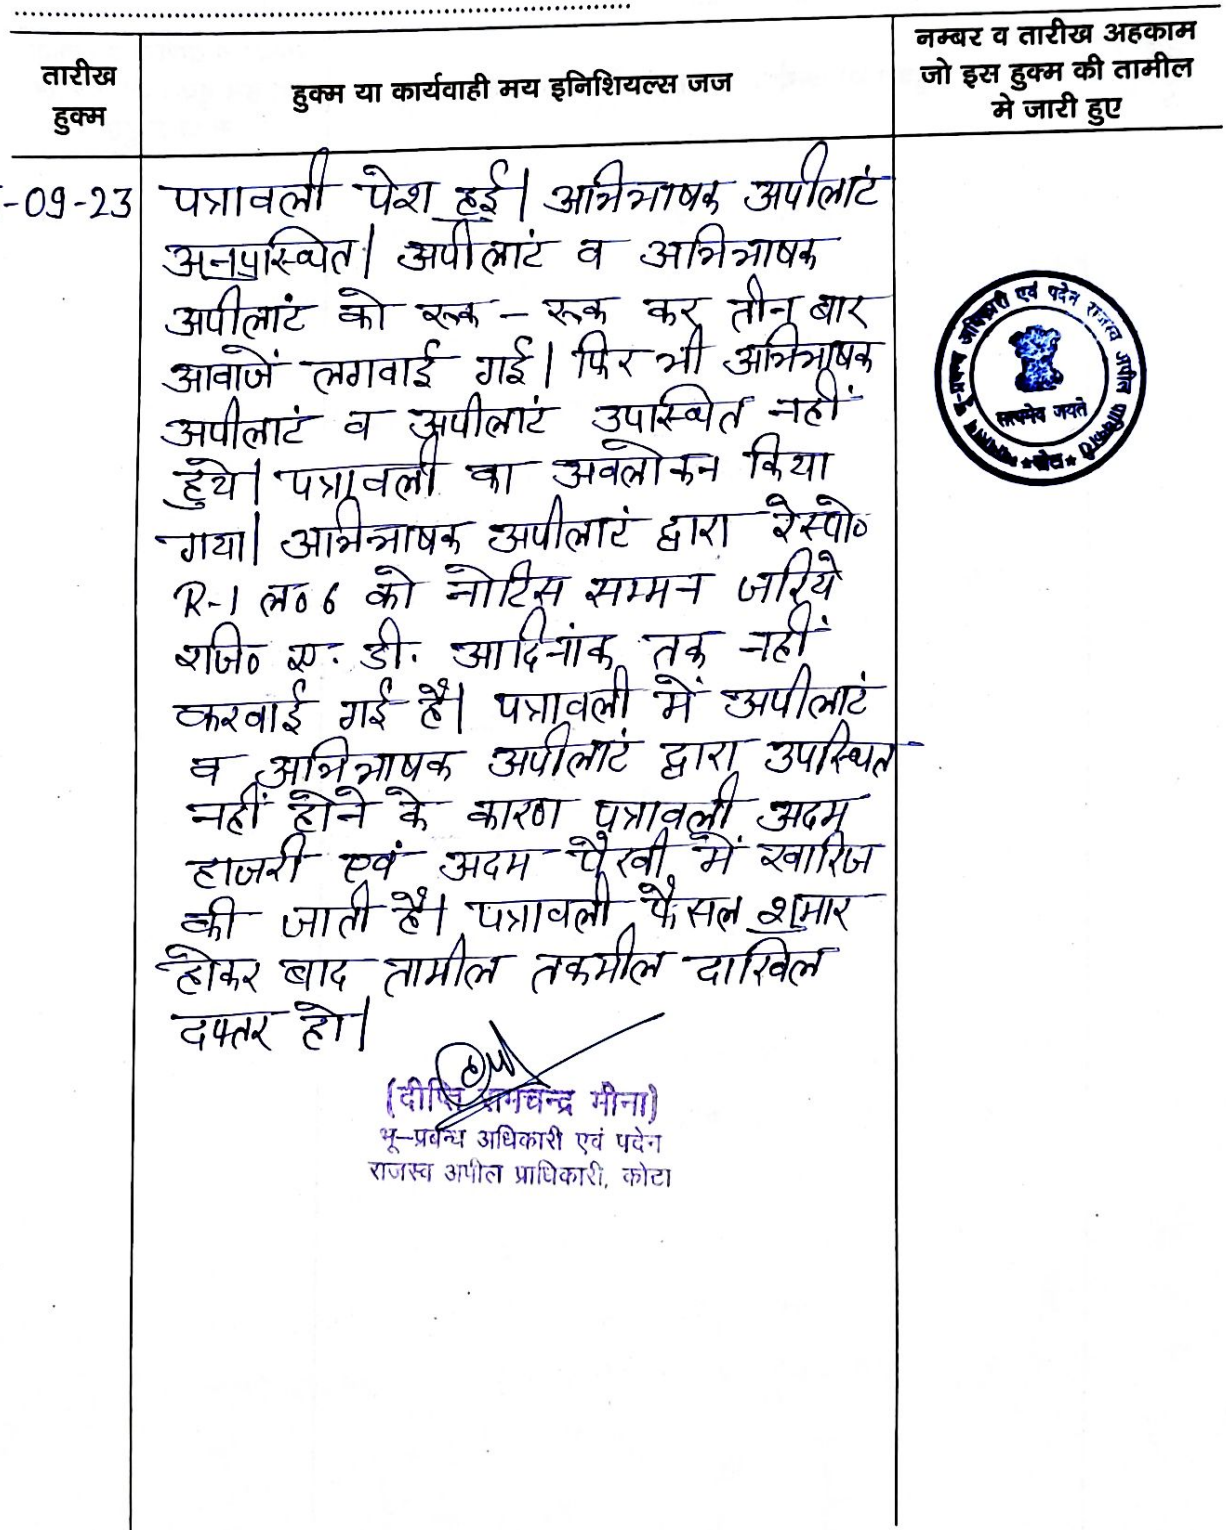 तारीख
हुक्म
हुक्म या कार्यवाही मय इनिशियल्स जज
नम्बर व तारीख अहकाम
जो इस हुक्म की तामील
मे जारी हुए
-09-23
पत्रावली पेश हुई। अभिभाषक अपीलांट
अनुपस्थित। अपीलांट व अभिभाषक
अपीलांट को रूक - रूक कर तीन बार
आवाजें लगवाई गई। फिर भी अभिभाषक
अपीलांट व अपीलांट उपस्थित नहीं
हुये। पत्रावली का अवलोकन किया
गया। अभिभाषक अपीलांट द्वारा रेस्पो०
R-1 ल० 6 को नोटिस सम्मन जरिये
रजि० ए. डी. आदिनांक तक नहीं
करवाई गई है। पत्रावली में अपीलांट
व अभिभाषक अपीलांट द्वारा उपस्थित
नहीं होने के कारण पत्रावली अदम
हाजरी एवं अदम पैरवी में खारिज
की जाती है। पत्रावली फैसल शुमार
होकर बाद तामील तकमील दाखिल
दफ्तर हो।
(दीप्ति रामचन्द्र मीना)
भू-प्रबन्ध अधिकारी एवं पदेन
राजस्व अपील प्राधिकारी, कोटा
भू-प्रबन्ध अधिकारी एवं पदेन राजस्व अपील प्राधिकारी
सत्यमेव जयते
कोटा